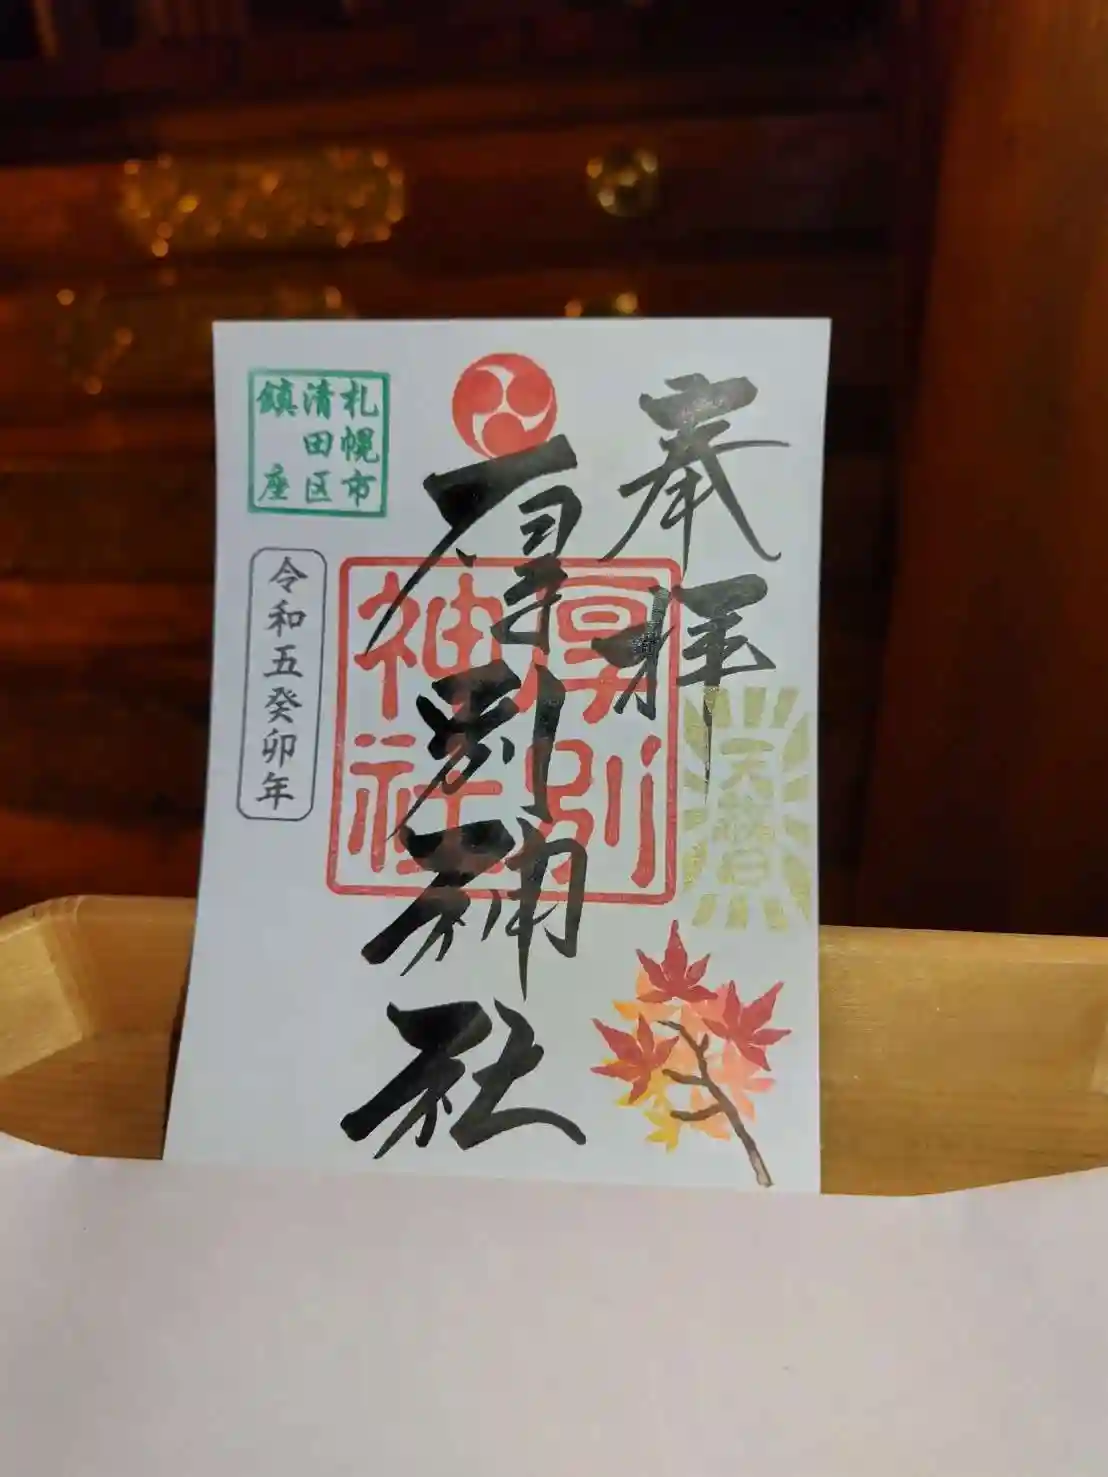 奉拝
天赦日
厚別神社
厚別
神社
札幌市
清田区
鎮座
令和五癸卯年